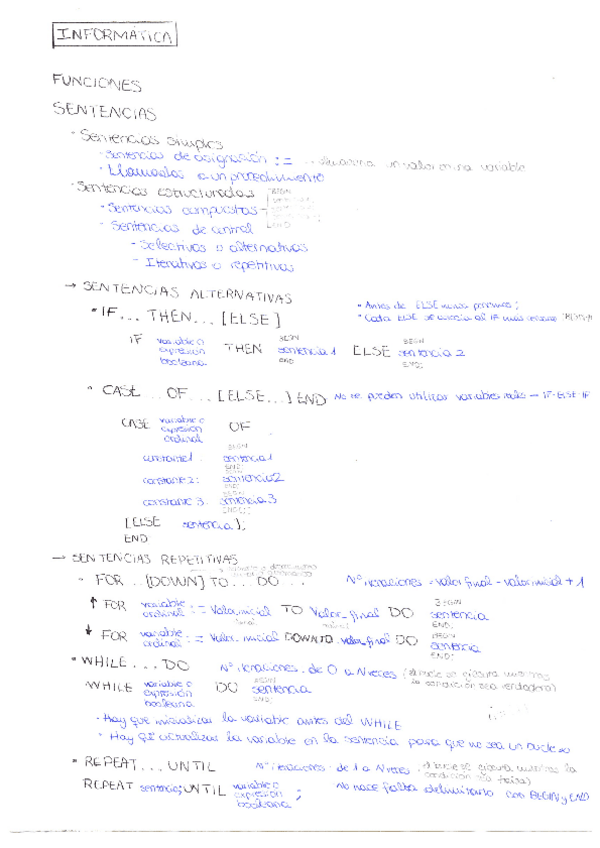 INFORMÁTICA
FUNCIONES
SENTENCIAS
· Sentencias simples
· Sentencias de asignación := un valor en una variable
· Llamadas a un procedimiento
· Sentencias estructuradas
BEGIN
· Sentencias compuestas
END
· Sentencias de control
- Selectivas o alternativas
- Iterativas o repetitivas
→ SENTENCIAS ALTERNATIVAS
• IF... THEN... [ELSE]
• Antes de ELSE nunca ponemos ;
• Cada ELSE se asocia al IF más cercano
BEGIN BEGIN
IF variable o expresión booleana THEN sentencia 1 ELSE sentencia 2
END END;
• CASE ... OF ... [ELSE...] END No se pueden utilizar variables reales → IF-ELSE-IF
CASE variable o expresión ordinal OF
BEGIN
constante1: sentencia1
END;
constante 2: sentencia2
END;
constante 3: sentencia3
END;
[ELSE sentencia];
END
→ SENTENCIAS REPETITIVAS
• FOR ... [DOWN] TO ... DO ... Nº iteraciones = valor final - valor inicial + 1
BEGIN
↑ FOR variable ordinal := Valor_inicial TO Valor_final DO sentencia
END;
BEGIN
↓ FOR variable ordinal := Valor_inicial DOWNTO valor_final DO sentencia
END;
• WHILE ... DO Nº iteraciones de 0 a N veces (el bucle se ejecuta mientras la condición sea verdadera)
BEGIN
WHILE variable o expresión booleana DO sentencia
END;
· Hay que inicializar la variable antes del WHILE
· Hay que actualizar la variable en la sentencia para que no sea un bucle ∞
• REPEAT ... UNTIL Nº iteraciones de 1 a N veces (el bucle se ejecuta mientras la condición sea falsa)
REPEAT sentencia; UNTIL variable o expresión booleana ; No hace falta delimitarlo con BEGIN y END